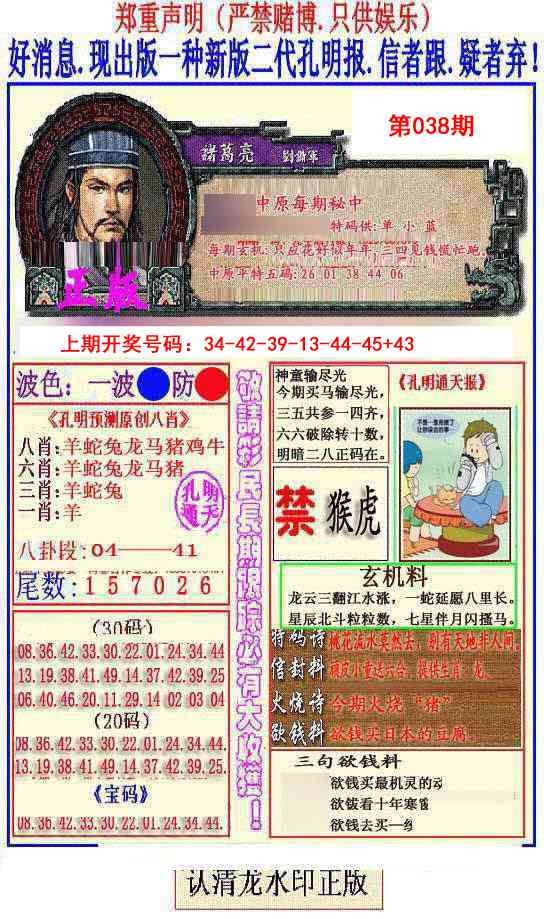 郑重声明（严禁赌博.只供娱乐）
好消息.现出版一种新版二代孔明报.信者跟.疑者弃!
第038期
諸葛亮
中原每期秘中
特码供:单 小 蓝
每期玄机:只应花好似年年 三四见钱慌忙跑.
中原平特五码:26 01 38 44 06
正版
上期开奖号码：34-42-39-13-44-45+43
波色：一波 防
《孔明预测原创八肖》
八肖:羊蛇兔龙马猪鸡牛
六肖:羊蛇兔龙马猪
三肖:羊蛇兔
一肖:羊
孔明
通天
八卦段:04——41
尾数:157026
(30码)
08.36.42.33.30.22.01.24.34.44
13.19.38.41.49.14.37.42.39.25
06.40.46.20.11.29.14 02 03 04
(20码)
08.36.42.33.30.22.01.24.34.44.
13.19.38.41.49.14.37.42.39.25.
《宝码》
08.36.42.33.30.22.01.24.34.44.
敬請彩民長期跟踪必有大收獲！
神童输尽光
今期买马输尽光，
三五共参一四齐，
六六破除转十数，
明暗二八正码在。
《孔明通天报》
禁 猴虎
玄机料
龙云三翻江水涨，一蛇延愿八里长。
星辰北斗粒粒数，七星伴月闪搔马。
特码诗 桃花流水窅然去，别有天地非人间.
信封料 顽皮小童送六合，提供生肖：龙。
火烧诗 今期火烧“猪”
欲钱料 欲钱买日本的豆腐。
三句欲钱料
欲钱买最机灵的动
欲钱看十年寒窗
欲钱去买一
认清龙水印正版